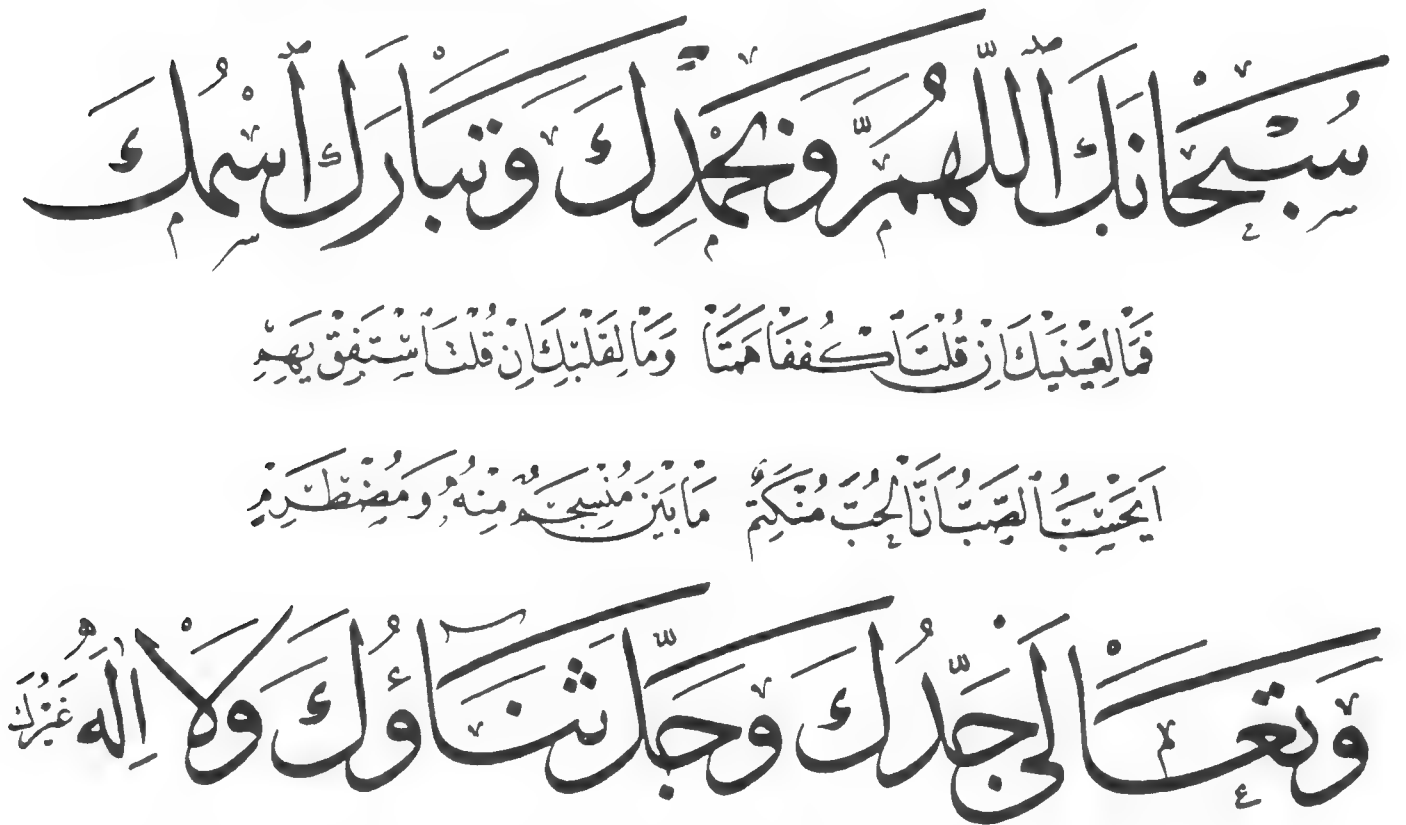 سُبْحَانَكَ ٱللّٰهُمَّ وَبِحَمْدِكَ وَتَبَارَكَ ٱسْمُكَ
فَمَا لِعَيْنَيْكَ اِنْ قُلْتَ اكْفُفَا هَمَتَا وَمَا لِقَلْبِكَ اِنْ قُلْتَ اسْتَفِقْ يَهِمِ
اَيَحْسِبُ الصَّبُّ اَنَّ الْحُبَّ مُنْكَتِمٌ مَا بَيْنَ مُنْسَجِمٍ مِنْهُ وَمُضْطَرِمِ
وَتَعَالَى جَدُّكَ وَجَلَّ ثَنَاؤُكَ وَلَا اِلٰهَ غَيْرُكَ